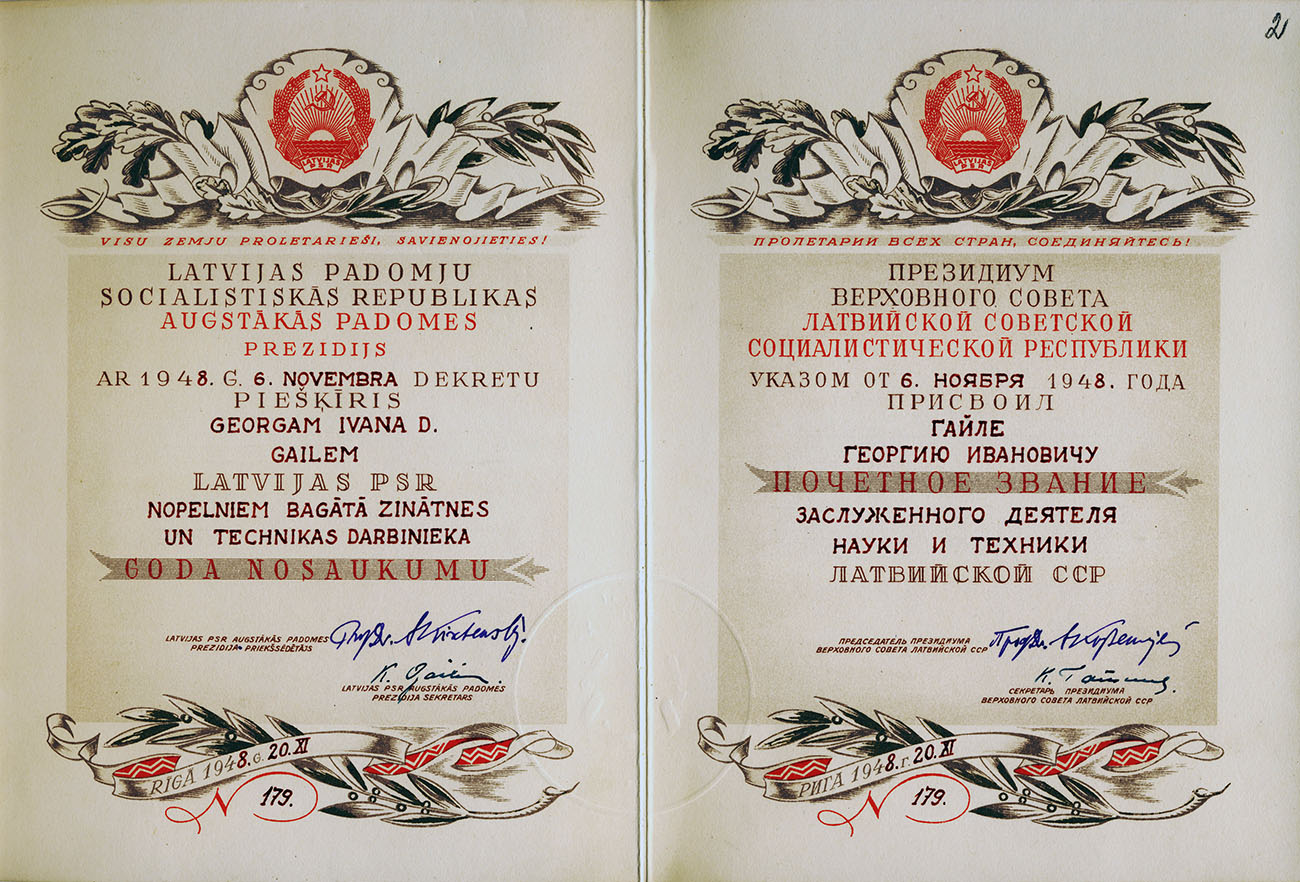 LATVIJAS
PSR
VISU ZEMJU PROLETARIEŠI, SAVIENOJIETIES!
LATVIJAS PADOMJU
SOCIALISTISKĀS REPUBLIKAS
AUGSTĀKĀS PADOMES
PREZIDIJS
AR 1948. G. 6. NOVEMBRA DEKRETU
PIEŠĶĪRIS
GEORGAM IVANA D.
GAILEM
LATVIJAS PSR
NOPELNIEM BAGĀTĀ ZINĀTNES
UN TECHNIKAS DARBINIEKA
GODA NOSAUKUMU
LATVIJAS PSR AUGSTĀKĀS PADOMES
PREZIDIJA PRIEKŠSĒDĒTĀJS
LATVIJAS PSR AUGSTĀKĀS PADOMES
PREZIDIJA SEKRETARS
RĪGĀ 1948. G. 20. XI
N 179.
2
LATVIJAS
PSR
ПРОЛЕТАРИИ ВСЕХ СТРАН, СОЕДИНЯЙТЕСЬ!
ПРЕЗИДИУМ
ВЕРХОВНОГО СОВЕТА
ЛАТВИЙСКОЙ СОВЕТСКОЙ
СОЦИАЛИСТИЧЕСКОЙ РЕСПУБЛИКИ
УКАЗОМ ОТ 6. НОЯБРЯ 1948. ГОДА
ПРИСВОИЛ
ГАЙЛЕ
ГЕОРГИЮ ИВАНОВИЧУ
ПОЧЕТНОЕ ЗВАНИЕ
ЗАСЛУЖЕННОГО ДЕЯТЕЛЯ
НАУКИ И ТЕХНИКИ
ЛАТВИЙСКОЙ ССР
ПРЕДСЕДАТЕЛЬ ПРЕЗИДИУМА
ВЕРХОВНОГО СОВЕТА ЛАТВИЙСКОЙ ССР
СЕКРЕТАРЬ ПРЕЗИДИУМА
ВЕРХОВНОГО СОВЕТА ЛАТВИЙСКОЙ ССР
РИГА 1948. Г. 20. XI
N 179.